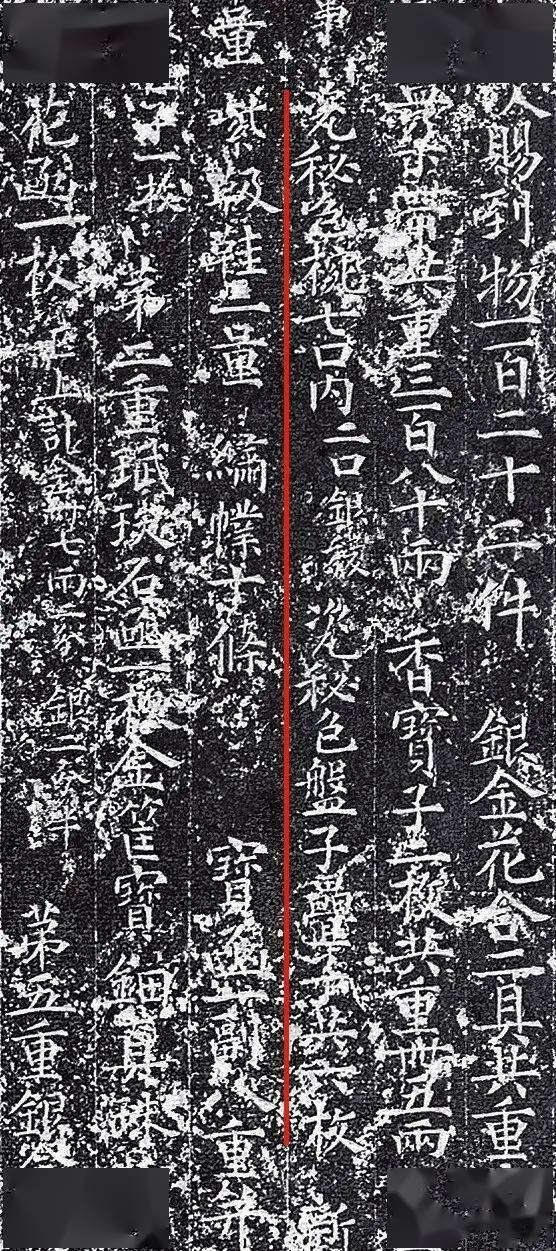 賜到物一百二十二件 銀金花合二具共重
朶帶共重三百八十兩 香寶子二枚共重卌五兩
事 瓷秘色椀七口内二口銀稜 瓷秘色盤子疊子共六枚 新
量 紫靸鞋二量 繡幞十條 寶函一副八重并
第二重珷玞石函一枚金筐寶鈿真珠
花函一枚 已上計金卌七兩二分 銀二分半 第五重銀